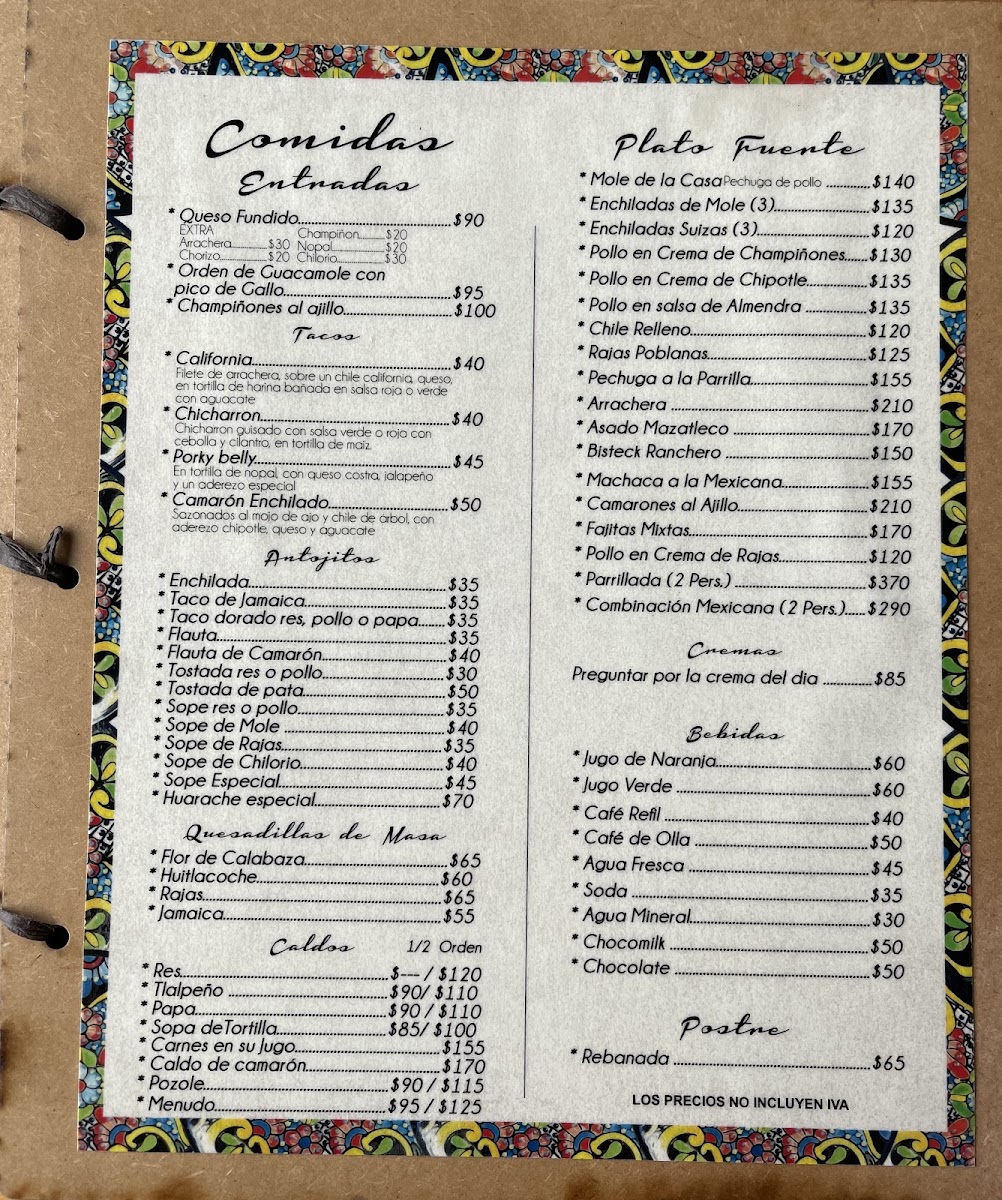 Comidas
Entradas
* Queso Fundido $90
EXTRA
Champiñon $20
Arrachera $30 Nopal $20
Chorizo $20 Chilorio $30
* Orden de Guacamole con
pico de Gallo $95
* Champiñones al ajillo $100
Tacos
* California $40
Filete de arrachera, sobre un chile california, queso,
en tortilla de harina bañada en salsa roja o verde
con aguacate
* Chicharron $40
Chicharron guisado con salsa verde o roja con
cebolla y cilantro, en tortilla de maiz.
* Porky belly $45
En tortilla de nopal, con queso costra, jalapeño
y un aderezo especial
* Camarón Enchilado $50
Sazonados al mojo de ajo y chile de arbol, con
aderezo chipotle, queso y aguacate
Antojitos
* Enchilada $35
* Taco de Jamaica $35
* Taco dorado res, pollo o papa $35
* Flauta $35
* Flauta de Camarón $40
* Tostada res o pollo $30
* Tostada de pata $50
* Sope res o pollo $35
* Sope de Mole $40
* Sope de Rajas $35
* Sope de Chilorio $40
* Sope Especial $45
* Huarache especial $70
Quesadillas de Masa
* Flor de Calabaza $65
* Huitlacoche $60
* Rajas $65
* Jamaica $55
Caldos 1/2 Orden
* Res $--- / $120
* Tlalpeño $90/ $110
* Papa $90 / $110
* Sopa deTortilla $85/ $100
* Carnes en su Jugo $155
* Caldo de camarón $170
* Pozole $90 / $115
* Menudo $95 / $125
Plato Fuerte
* Mole de la Casa Pechuga de pollo $140
* Enchiladas de Mole (3) $135
* Enchiladas Suizas (3) $120
* Pollo en Crema de Champiñones $130
* Pollo en Crema de Chipotle $135
* Pollo en salsa de Almendra $135
* Chile Relleno $120
* Rajas Poblanas $125
* Pechuga a la Parrilla $155
* Arrachera $210
* Asado Mazatleco $170
* Bisteck Ranchero $150
* Machaca a la Mexicana $155
* Camarones al Ajillo $210
* Fajitas Mixtas $170
* Pollo en Crema de Rajas $120
* Parrillada (2 Pers.) $370
* Combinación Mexicana (2 Pers.) $290
Cremas
Preguntar por la crema del dia $85
Bebidas
* Jugo de Naranja $60
* Jugo Verde $60
* Café Refil $40
* Café de Olla $50
* Agua Fresca $45
* Soda $35
* Agua Mineral $30
* Chocomilk $50
* Chocolate $50
Postre
* Rebanada $65
LOS PRECIOS NO INCLUYEN IVA